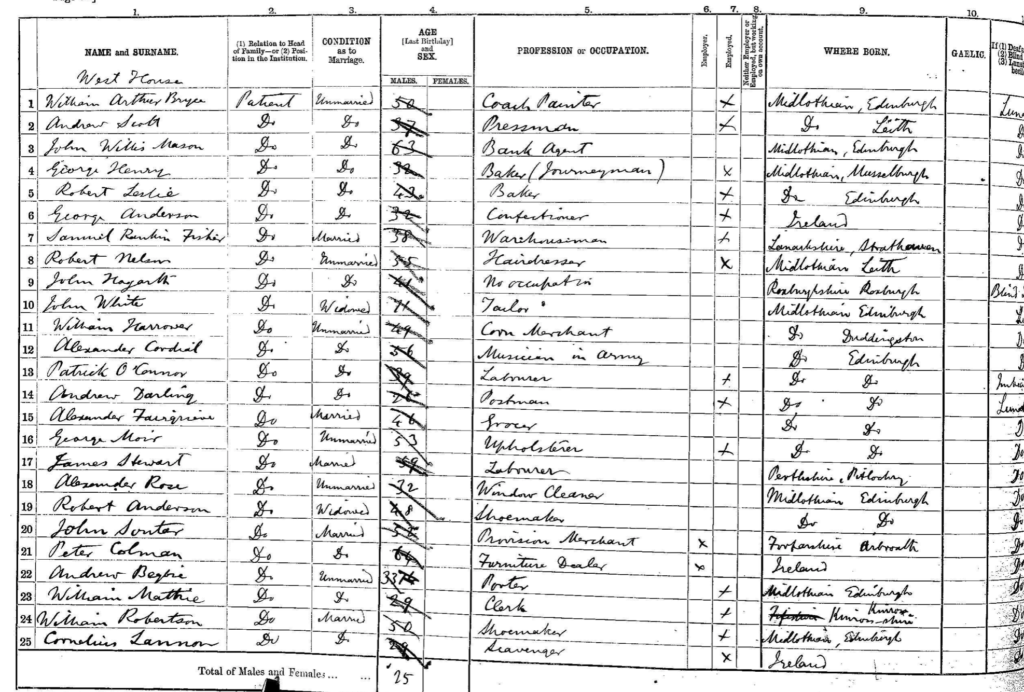 1. 2. 3. 4. 5. 6. 7. 8. 9. 10.
NAME and SURNAME. (1) Relation to Head of Family—or (2) Position in the Institution. CONDITION as to Marriage. AGE [Last Birthday] and SEX. PROFESSION or OCCUPATION. Employer. Employed. Neither Employer or Employed, but working on own account. WHERE BORN. GAELIC.
MALES. FEMALES.
West House
1 William Arthur Bryce Patient Unmarried 50 Coach Painter x Midlothian, Edinburgh
2 Andrew Scott Do Do 37 Pressman x Do Leith
3 John Willis Mason Do Do 63 Bank Agent Midlothian, Edinburgh
4 George Henry Do Do 32 Baker (Journeyman) x Midlothian, Musselburgh
5 Robert Leslie Do Do 43 Baker x Do Edinburgh
6 George Anderson Do Do 32 Confectioner x Ireland
7 Samuel Rankin Fisher Do Married 38 Warehouseman x Lanarkshire, Strathaven
8 Robert Nelson Do Unmarried 35 Hairdresser x Midlothian Leith
9 John Hogarth Do Do 41 No occupation Roxburghshire Roxburgh
10 John White Do Widowed 71 Tailor Midlothian Edinburgh
11 William Harrower Do Unmarried 49 Corn Merchant Do Duddingston
12 Alexander Cordial Do Do 56 Musician in Army Do Edinburgh
13 Patrick O'Connor Do Do 39 Labourer x Do Do
14 Andrew Darling Do Do Postman x Do Do
15 Alexander Fairgrieve Do Married 46 Grocer Do Do
16 George Moir Do Unmarried 53 Upholsterer x Do Do
17 James Stewart Do Married 59 Labourer Perthshire, Pitlochry
18 Alexander Rose Do Unmarried 32 Window Cleaner Midlothian Edinburgh
19 Robert Anderson Do Widowed 48 Shoemaker Do Do
20 John Souter Do Married Provision Merchant x Forfarshire Arbroath
21 Peter Colman Do Do 64 Furniture Dealer x Ireland
22 Andrew Begbie Do Unmarried Porter x Midlothian Edinburgh
23 William Mathie Do Do 29 Clerk x Kinross-shire Kinross
24 William Robertson Do Married 50 Shoemaker x Midlothian, Edinburgh
25 Cornelius Lannon Do Do Scavenger x Ireland
Total of Males and Females ... ... 25